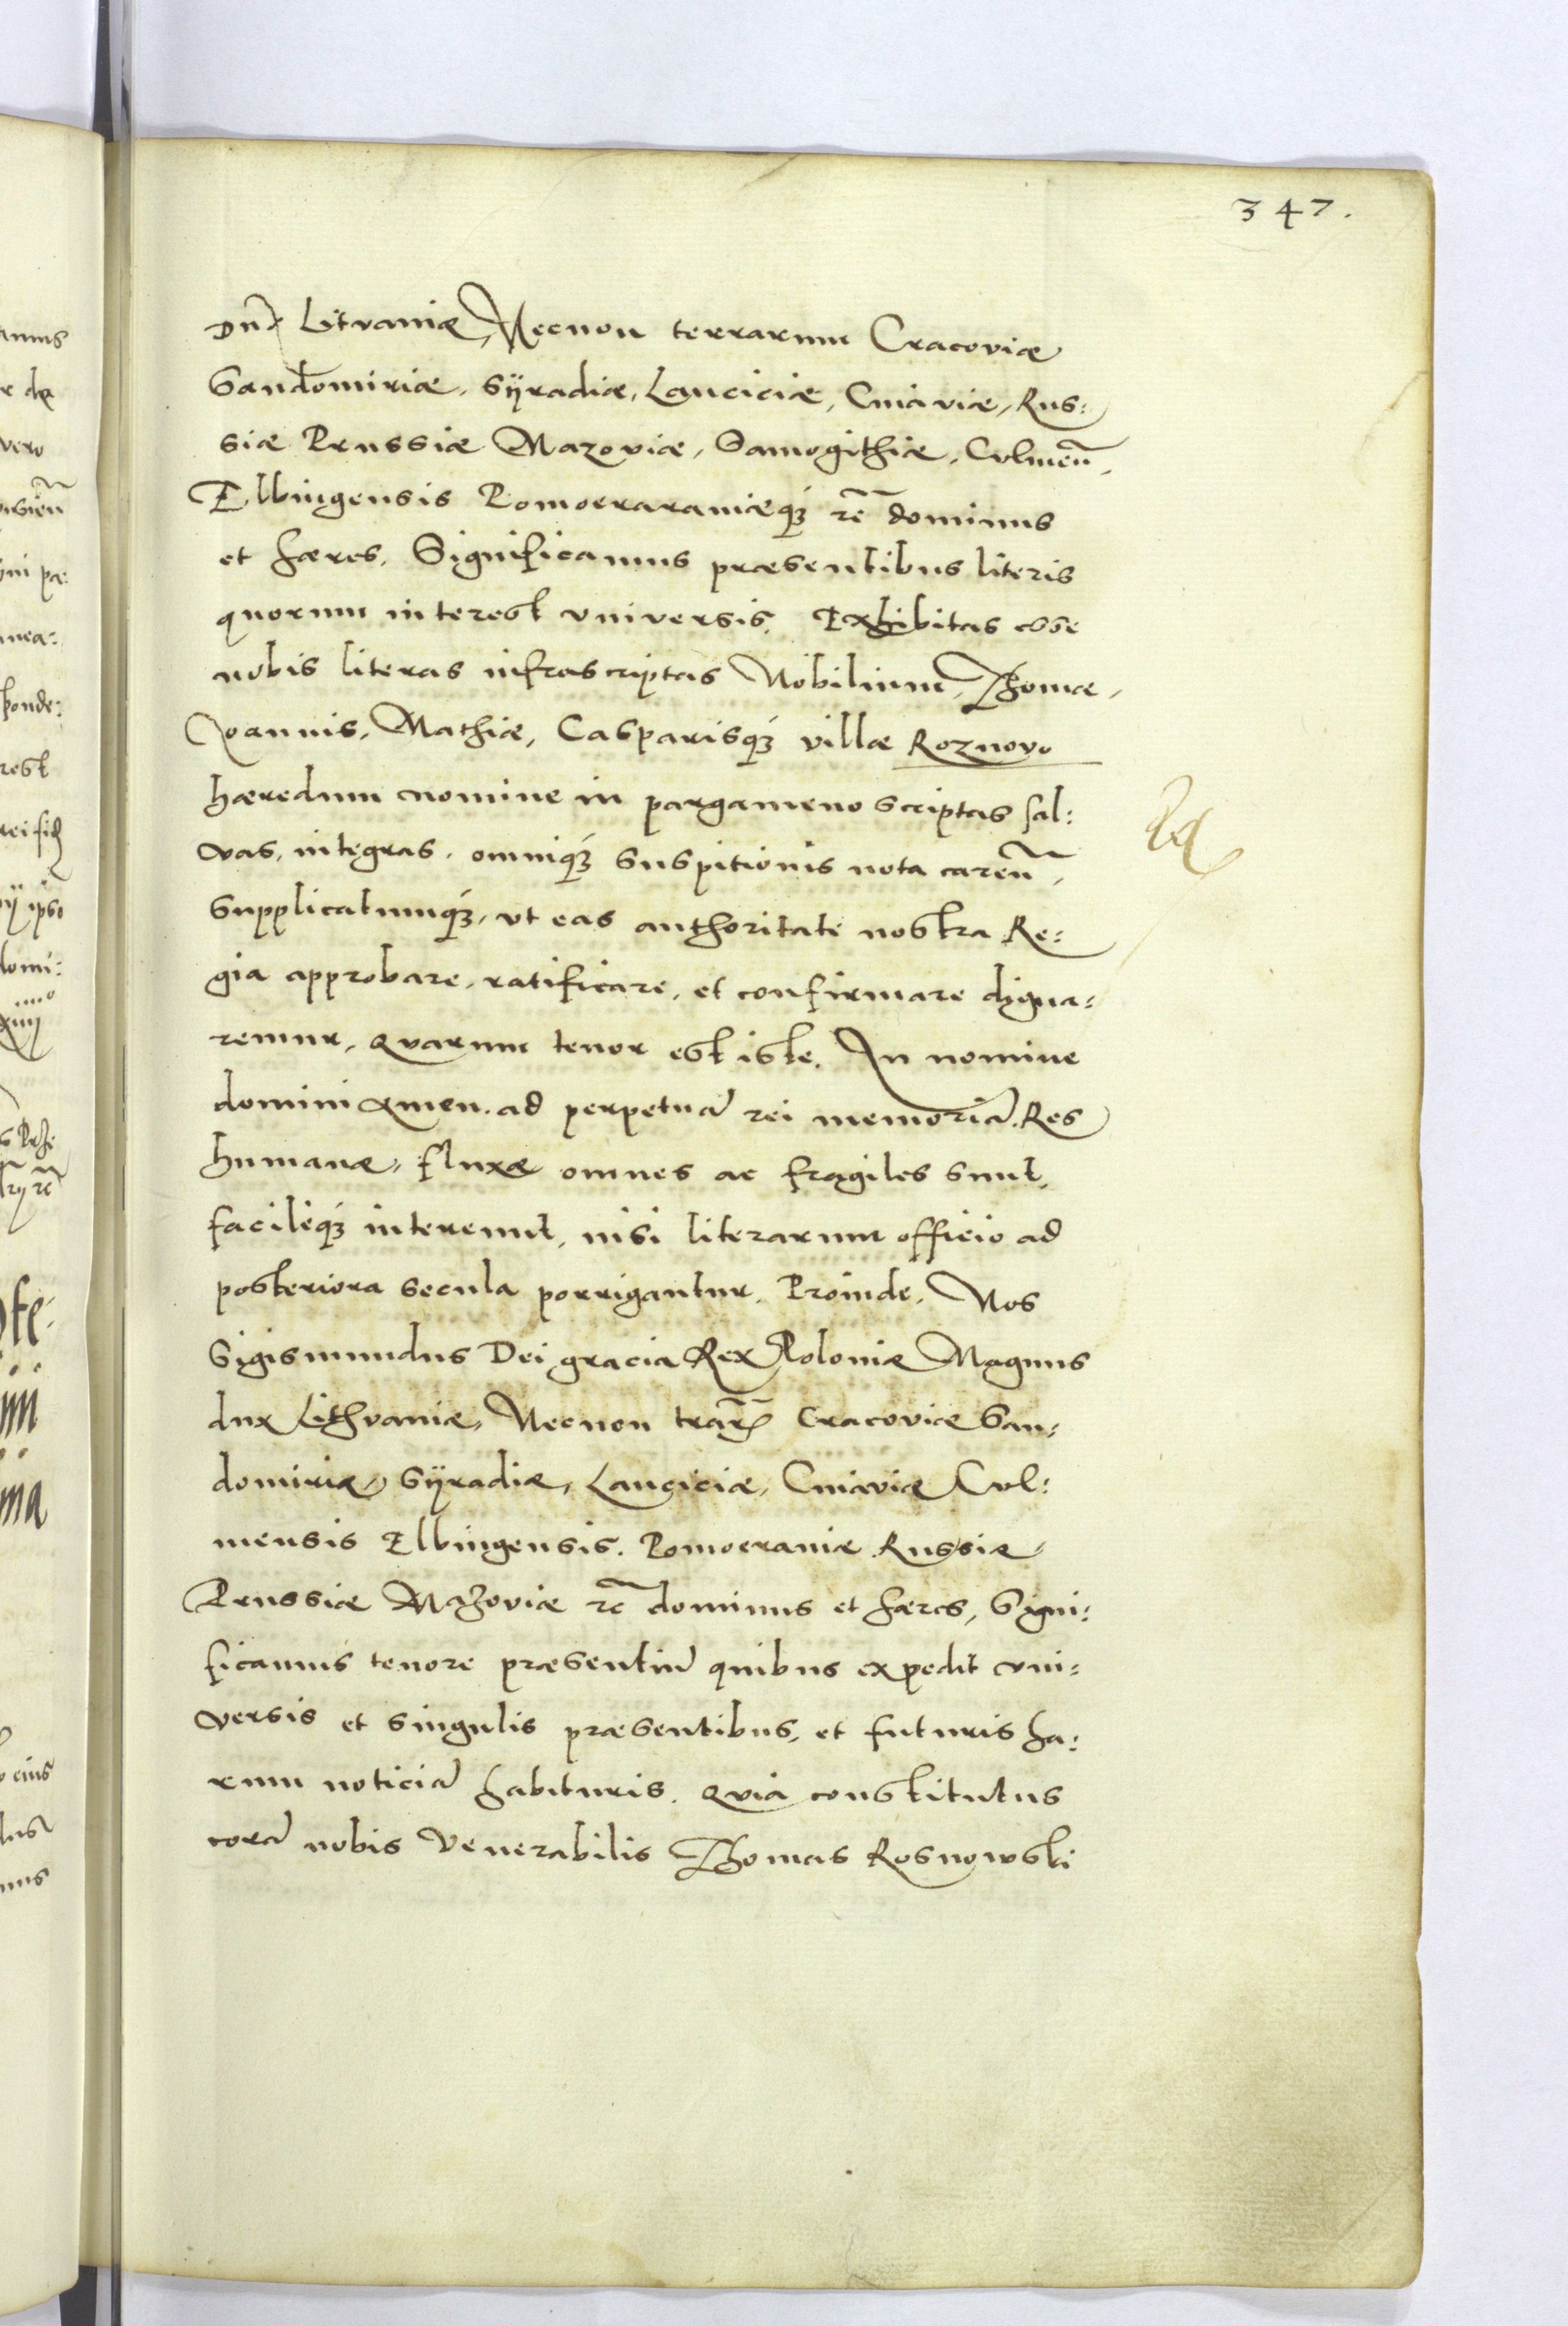 347.
Dux Litvaniæ, Necnon terrarum Cracoviæ
Sandomiriæ, Syradiæ, Lanciciæ, Cuiaviæ, Rus:
siæ Prussiæ Mazoviæ, Samogithiæ, Culmeñ,
Elbingensis Pomoeraraniæq́ꝫ zc̃ dominus
et hæres. Significamus præsentibus literis
quorum interest vniversis. Exhibitas esse
nobis literas infrascriptas Nobilium, Thomæ,
Ioannis, Mathiæ, Casparisq́ꝫ villæ Roznovo
hæredum nomine in pargameno scriptas sal:
vas, integras, omniq́ꝫ suspitionis nota careñ,
Supplicatumq́ꝫ, vt eas authoritate nostra Re:
gia approbare, ratificare, et confirmare digna:
remur, quarum tenor est iste. In nomine
domini amen. ad perpetuā rei memoriā. Res
humanæ, fluxæ omnes ac fragiles sunt,
facileq́ꝫ intereunt, nisi literarum officio ad
posteriora secula porrigantur. Proinde, Nos
Sigismundus Dei gracia Rex Poloniæ Magnus
dux Lithvaniæ, Necnon trarꝝ̃ Cracoviæ San:
domiriæ, Syradiæ, Lanciciæ, Cuiaviæ Cul:
mensis Elbingensis. Pomoeraniæ Russiæ
Prussiæ Mazoviæ zc̃ dominus et hæres, Signi:
ficamus tenore præsentiū quibus expedit vni:
versis et singulis præsentibus, et futuris ha:
rum noticiā habituris. quia constitutus
corā nobis Venerabilis Thomas Rosnowski